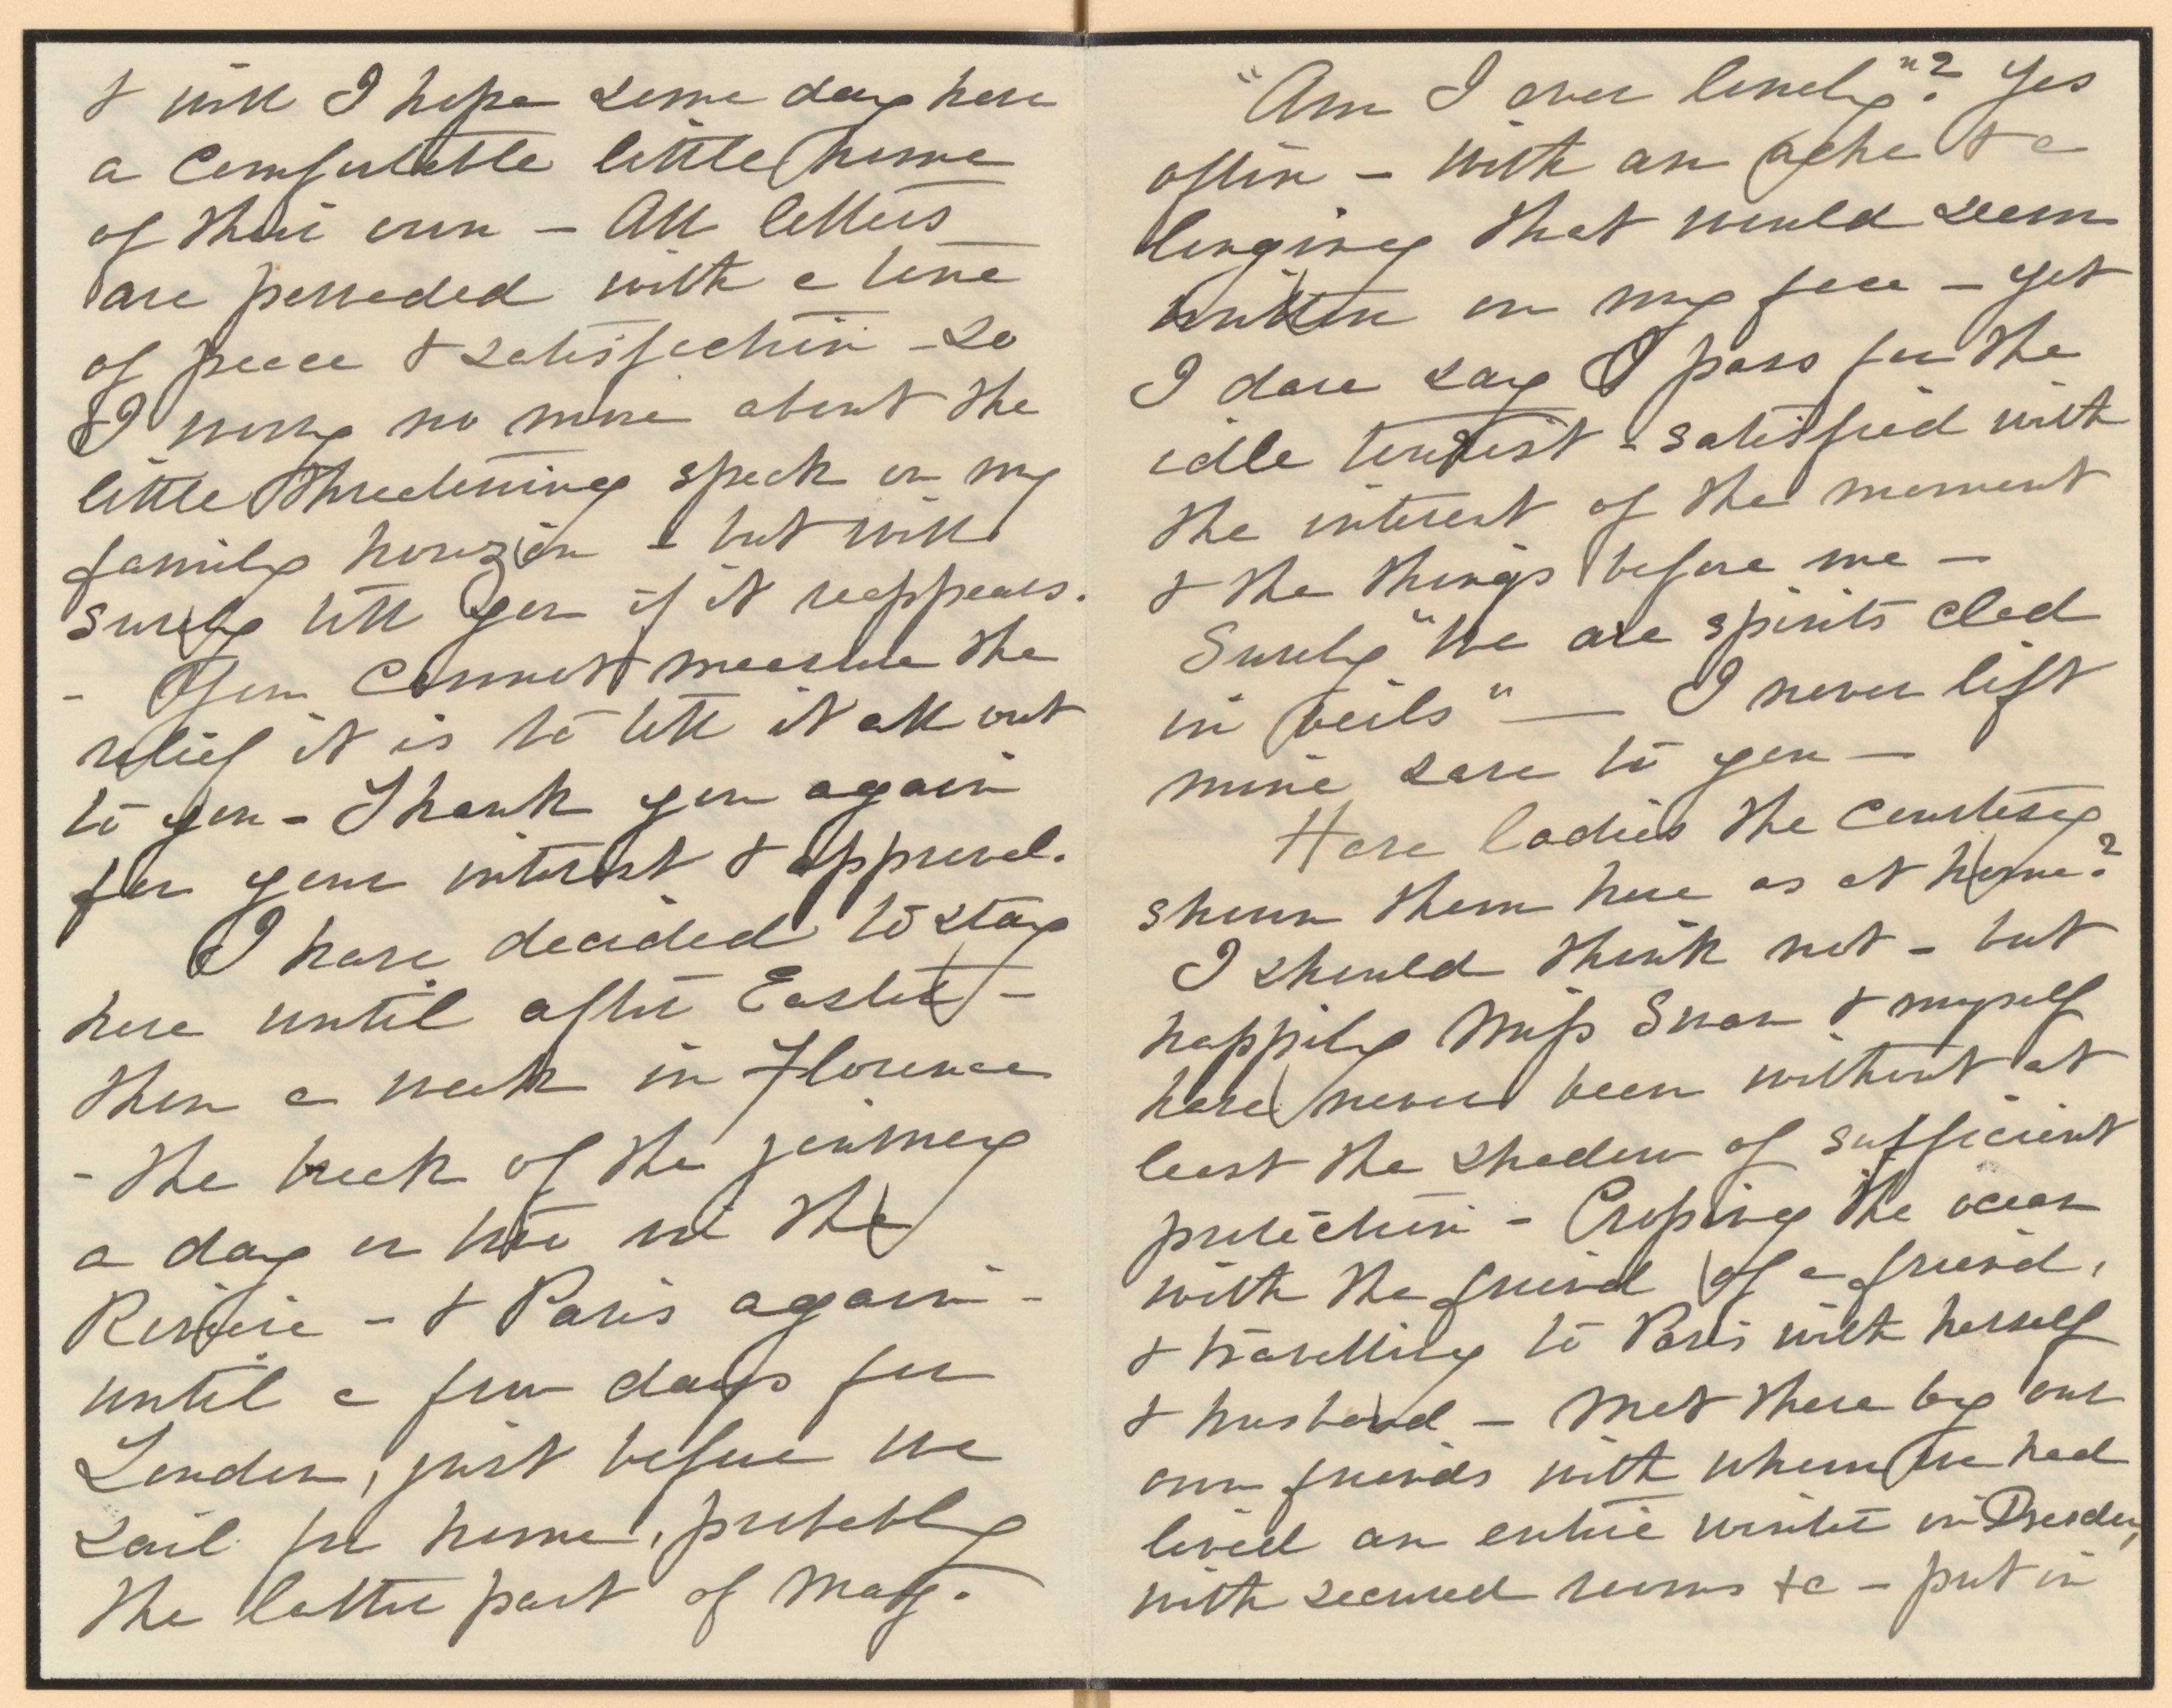 & will I hope some day have
a comfortable little home
of their own - All letters
are pervaded with a tone
of peace & satisfaction - so
I worry no more about the
little threatening speck on my
family horizon - but will
surely tell you if it reappears.
- You cannot measure the
relief it is to tell it all out
to you - Thank you again
for your interest & approval.
I have decided to stay
here until after Easter -
then a week in Florence
- the back of the journey
a day or two on the
Riviera - & Paris again -
until a few days for
London, just before we
sail for home, probably
the latter part of May.
"Am I ever lonely"? Yes
often - with an ache & a
longing that would seem
written on my face - yet
I dare say I pass for the
idle tourist - satisfied with
the interest of the moment
& the things before me -
Surely "We are spirits clad
in veils" — I never lift
mine save to you —
Have ladies the courtesy
shown them here as at home?
I should think not - but
happily Miss Swan & myself
have never been without at
least the shadow of sufficient
protection - Crossing the ocean
with the friend of a friend,
& travelling to Paris with herself
& husband - Met there by our
own friends with whom we had
lived an entire winter in Dresden,
with secured rooms &c - put in